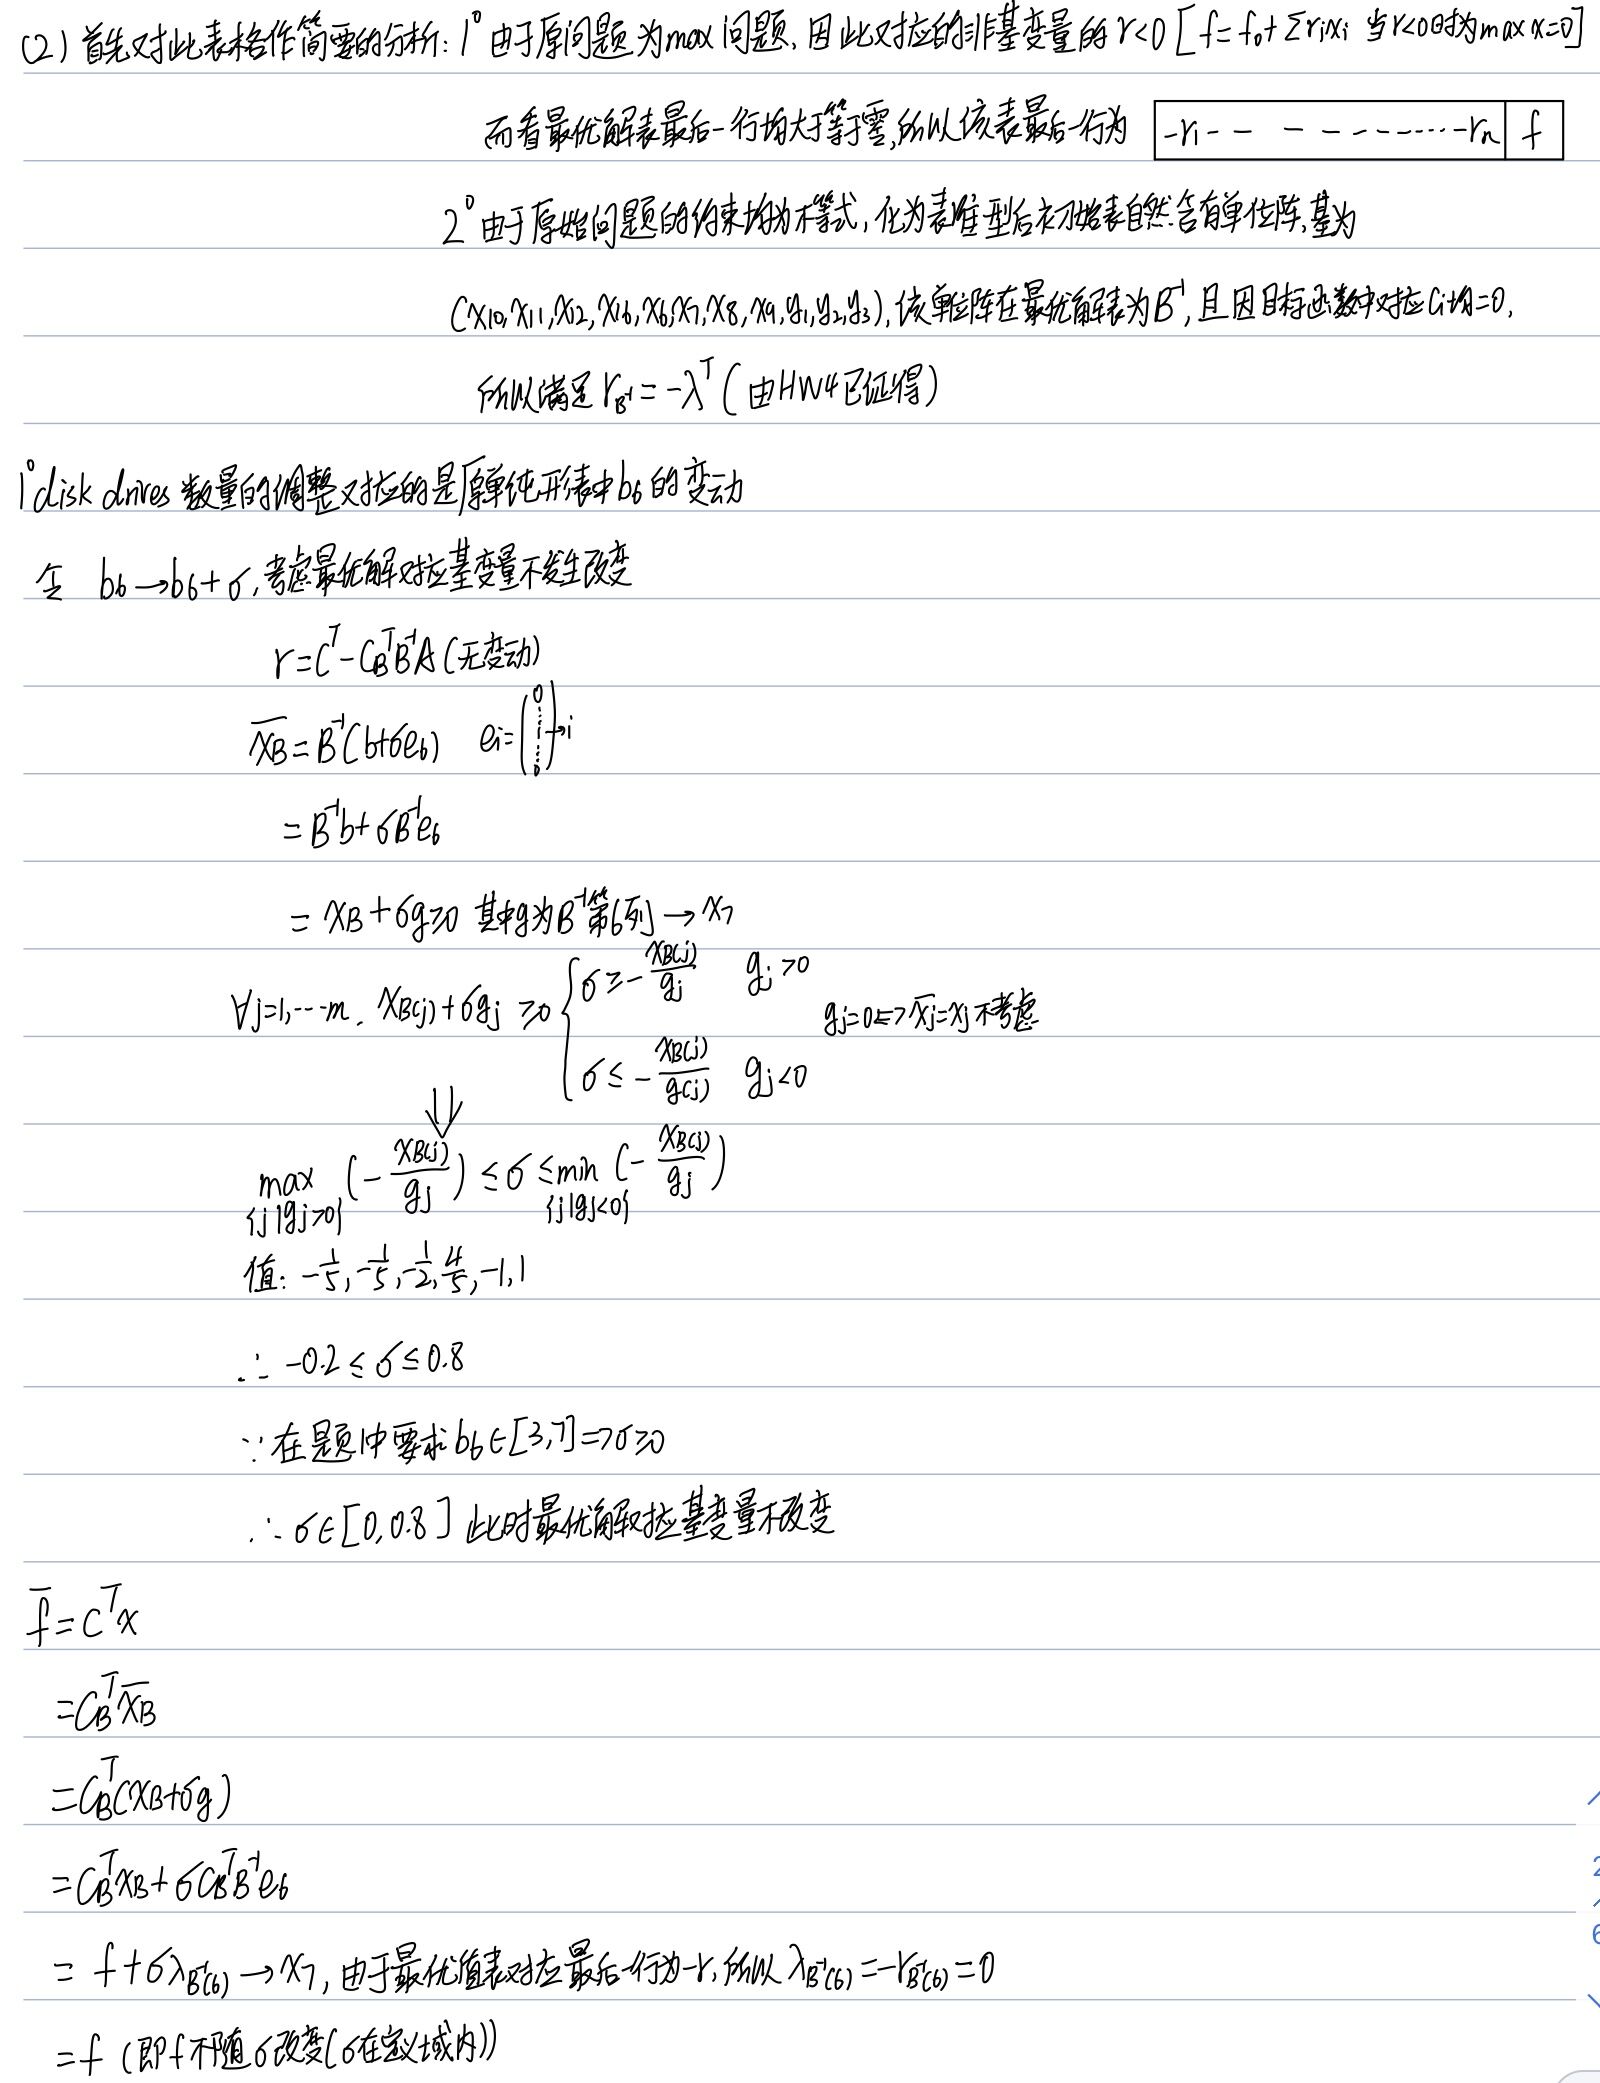 (2) 首先对此表格作简要的分析: 1° 由于原问题为max问题, 因此对应的非基变量的 r<0 [f=f₀+Σrᵢxᵢ 当r<0时为max x=0]
而看最优解表最后一行均大于等于零,所以该表最后一行为 -r₁ - - - - - - - ···· -rₙ | f
2° 由于原始问题的约束均为不等式, 化为标准型后初始表自然含有单位阵,基为
(x₁₀,x₁₁,x₁₂,x₁₆,x₆,x₇,x₈,x₉,y₁,y₂,y₃), 该单位阵在最优解表为B⁻¹, 且因目标函数中对应cᵢ均=0,
所以满足 r_{B⁻¹} = -λᵀ (由HW4已证得)
1° disk drives 数量的调整对应的是原单纯形表中b₆的变动
令 b₆→b₆+σ, 考虑最优解对应基变量不发生改变
r=Cᵀ-C_BᵀB⁻¹A (无变动)
x̄_B = B⁻¹(b+σe₆) eᵢ=(0 ⋮ 1 ⋮ 0)→i
= B⁻¹b+σB⁻¹e₆
= x_B+σg≥0 其中g为B⁻¹第6列 → x₇
∀j=1,···m. x_{B(j)}+σgⱼ ≥0 { σ≥-x_{B(j)}/gⱼ gⱼ>0
gⱼ=0⇔x̄ⱼ=xⱼ不考虑
σ≤-x_{B(j)}/g(j) gⱼ<0
⇓
max{j|gⱼ>0} (-x_{B(j)}/gⱼ) ≤σ≤ min{j|gⱼ<0} (-x_{B(j)}/gⱼ)
值: -1/5, -1/5, -1/2, 4/5, -1, 1
∴ -0.2≤σ≤0.8
∵ 在题中要求b₆∈[3,7]⇒σ≥0
∴ σ∈[0,0.8] 此时最优解对应基变量不改变
f̄=Cᵀx
=C_Bᵀx̄_B
=C_Bᵀ(x_B+σg)
=C_Bᵀx_B+σC_BᵀB⁻¹e₆
= f+σλ_{B⁻¹(6)} → x₇, 由于最优值表对应最后一行为-r, 所以 λ_{B⁻¹(6)}=-r_{B⁻¹(6)}=0
=f (即f不随σ改变(σ在定义域内))